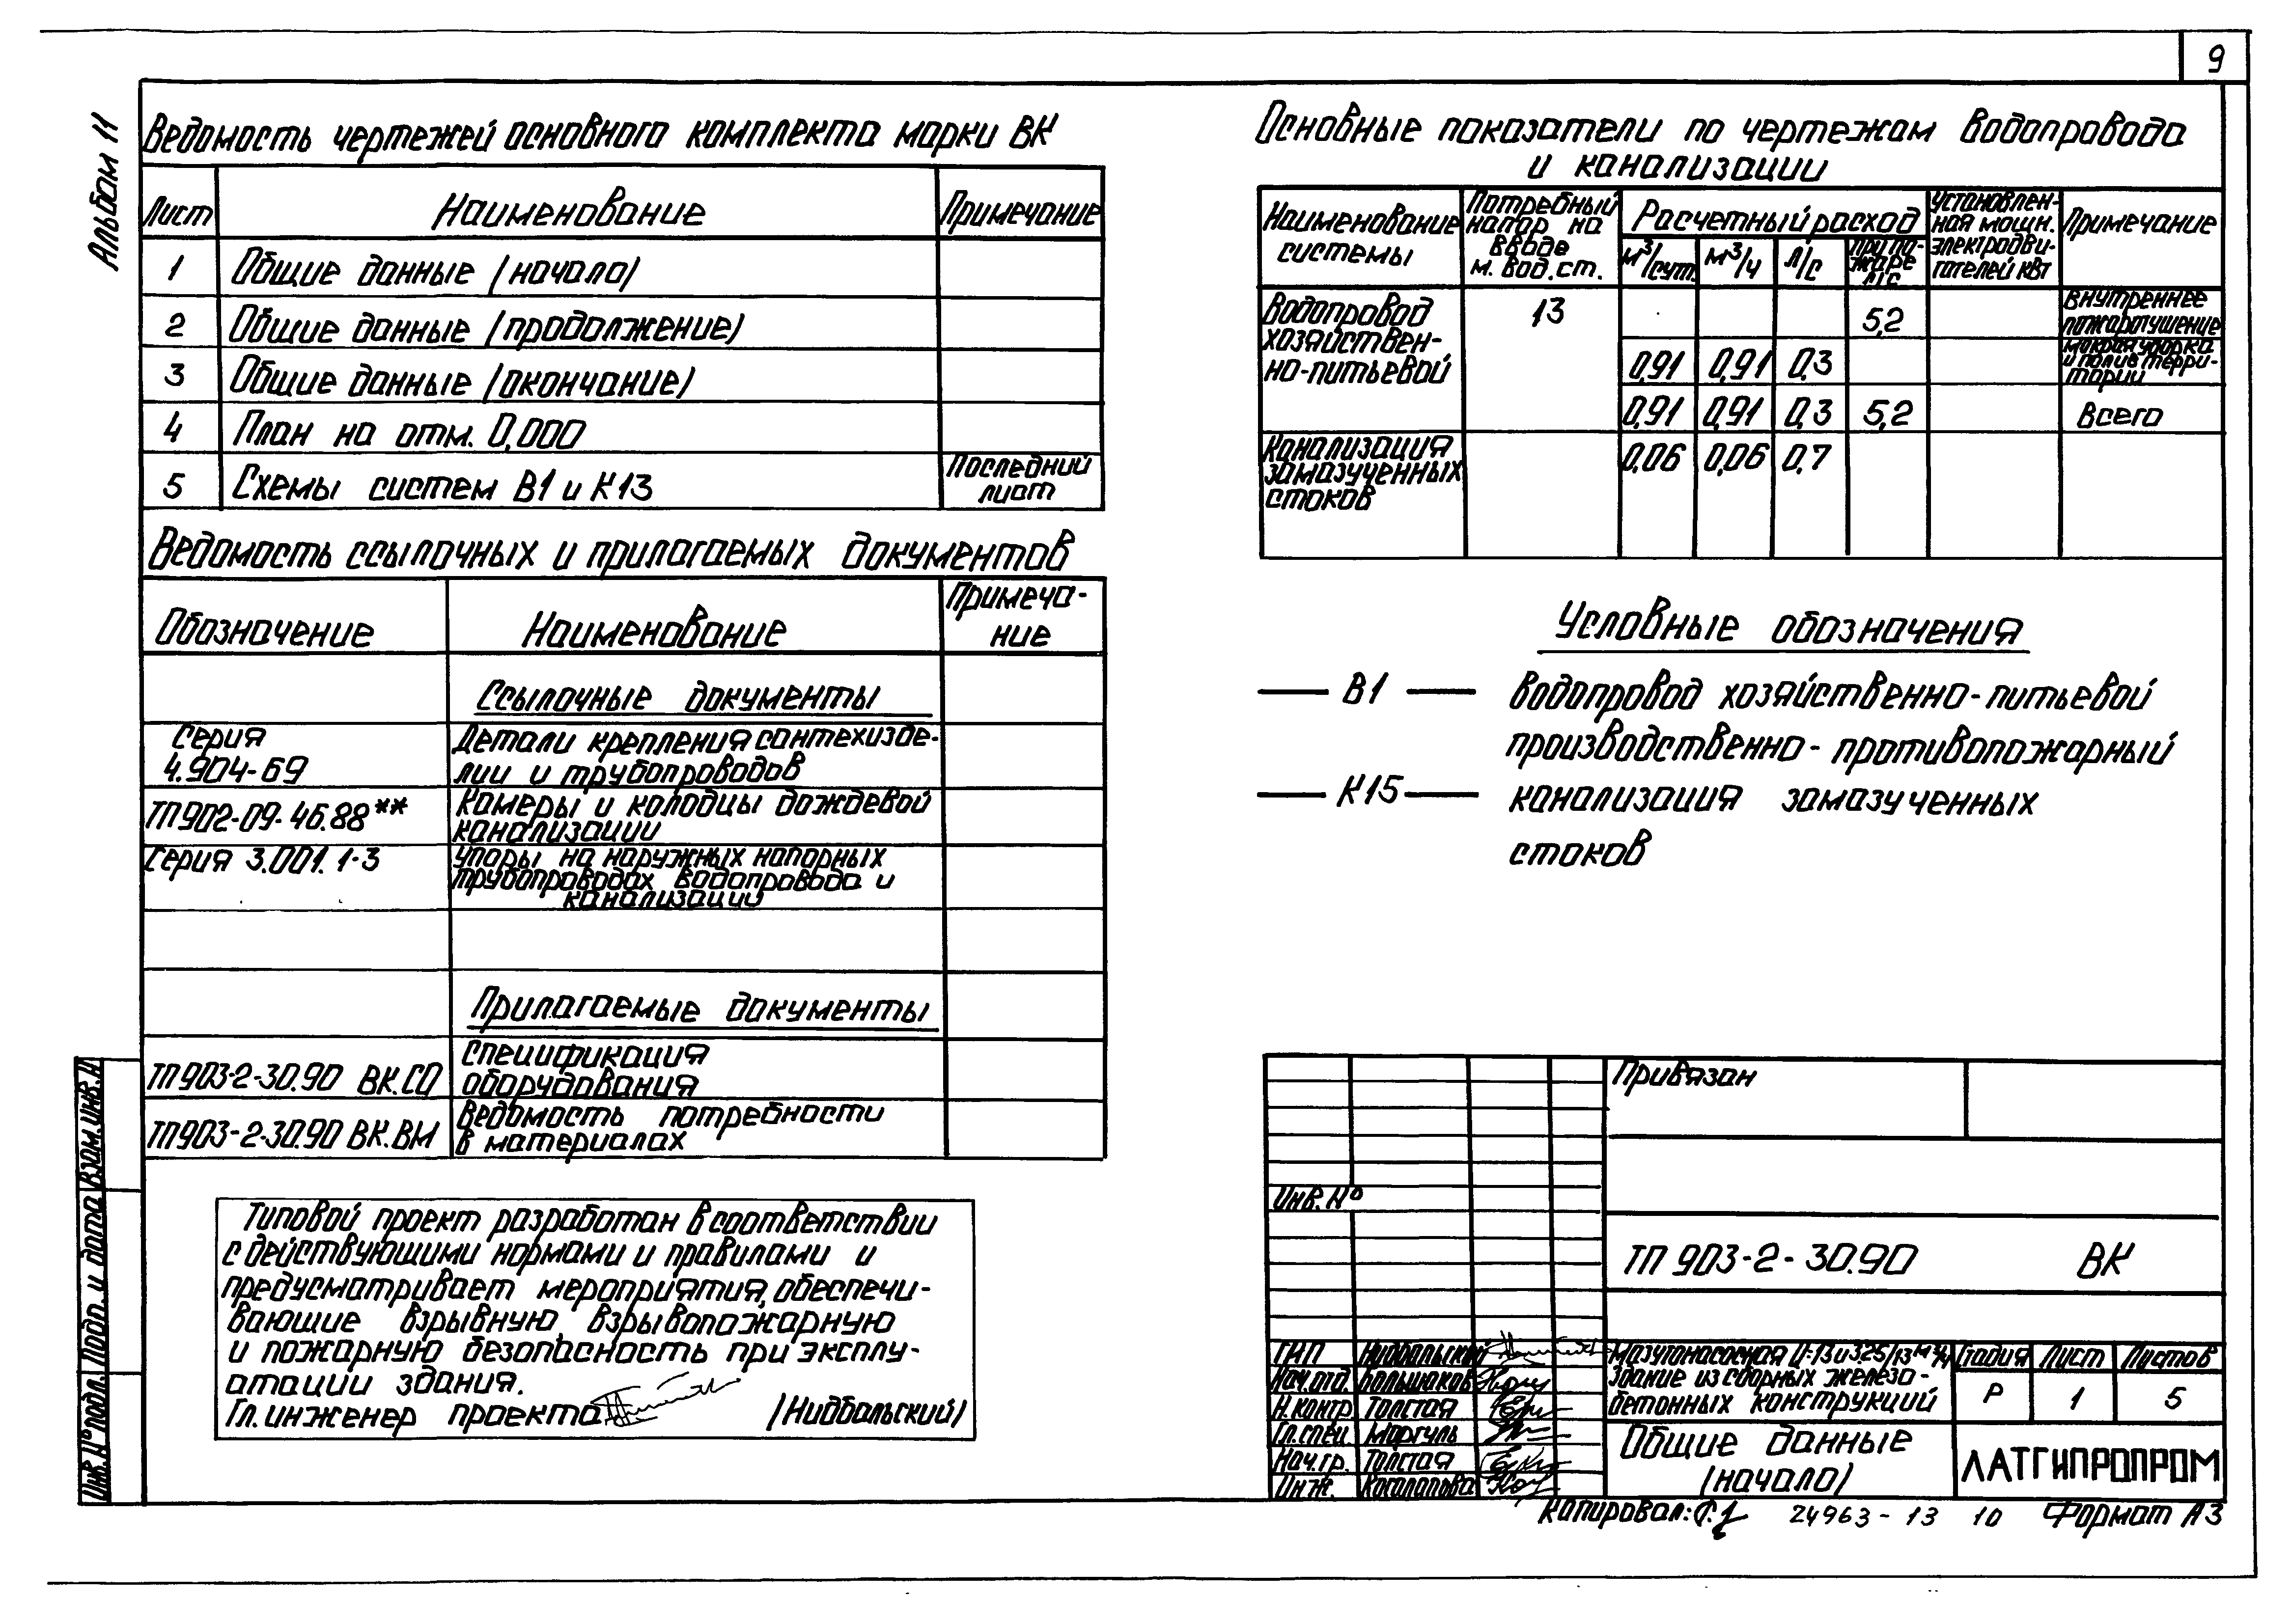 9
Альбом 11
Ведомость чертежей основного комплекта марки ВК
Лист Наименование Примечание
1 Общие данные (начало)
2 Общие данные (продолжение)
3 Общие данные (окончание)
4 План на отм. 0,000
5 Схемы систем В1 и К13 Последний лист
Ведомость ссылочных и прилагаемых документов
Обозначение Наименование Примеча-
ние
Ссылочные документы
Серия
4.904-69
Детали крепления сантехизде-
лии и трубопроводов
ТП902-09-46.88**
Камеры и колодцы дождевой
канализации
Серия 3.001.1-3
Упоры на наружных напорных
трубопроводах водопровода и
канализации
Прилагаемые документы
ТП903-2-30.90 ВК.СО
Спецификация
оборудования
ТП903-2-30.90 ВК.ВМ
Ведомость потребности
в материалах
Типовой проект разработан в соответствии
с действующими нормами и правилами и
предусматривает мероприятия, обеспечи-
вающие взрывную, взрывопожарную
и пожарную безопасность при эксплу-
атации здания.
Гл. инженер проекта (Нидбальский)
Инв.№ подл. Подп. и дата Взам.инв.№
Основные показатели по чертежам водопровода
и канализации
Наименование
системы
Потребный
напор на
вводе
м. вод. ст.
Расчетный расход
м³/сут. м³/ч л/с при по-
жаре
л/с
Установлен-
ная мощн.
электродви-
гателей кВт
Примечание
Водопровод
хозяйствен-
но-питьевой
13 5,2 внутреннее
пожаротушение
0,91 0,91 0,3 мокрая уборка
и полив терри-
тории
0,91 0,91 0,3 5,2 Всего
Канализация
замазученных
стоков
0,06 0,06 0,7
Условные обозначения
В1 водопровод хозяйственно-питьевой
производственно-противопожарный
К15 канализация замазученных
стоков
Привязан
Инв.№
ТП 903-2-30.90 ВК
ГИП Нидбальский
Нач.отд. Большаков
Н.контр. Толстая
Гл.спец. Маргуль
Нач.гр. Толстая
Инж. Косолапова
Мазутонасосная Q=13 и 3.25/13 м³/ч
Здание из сборных железо-
бетонных конструкций
Стадия Лист Листов
Р 1 5
Общие данные
(начало)
ЛАТГИПРОПРОМ
Копировал: 24963-13 10 Формат А3